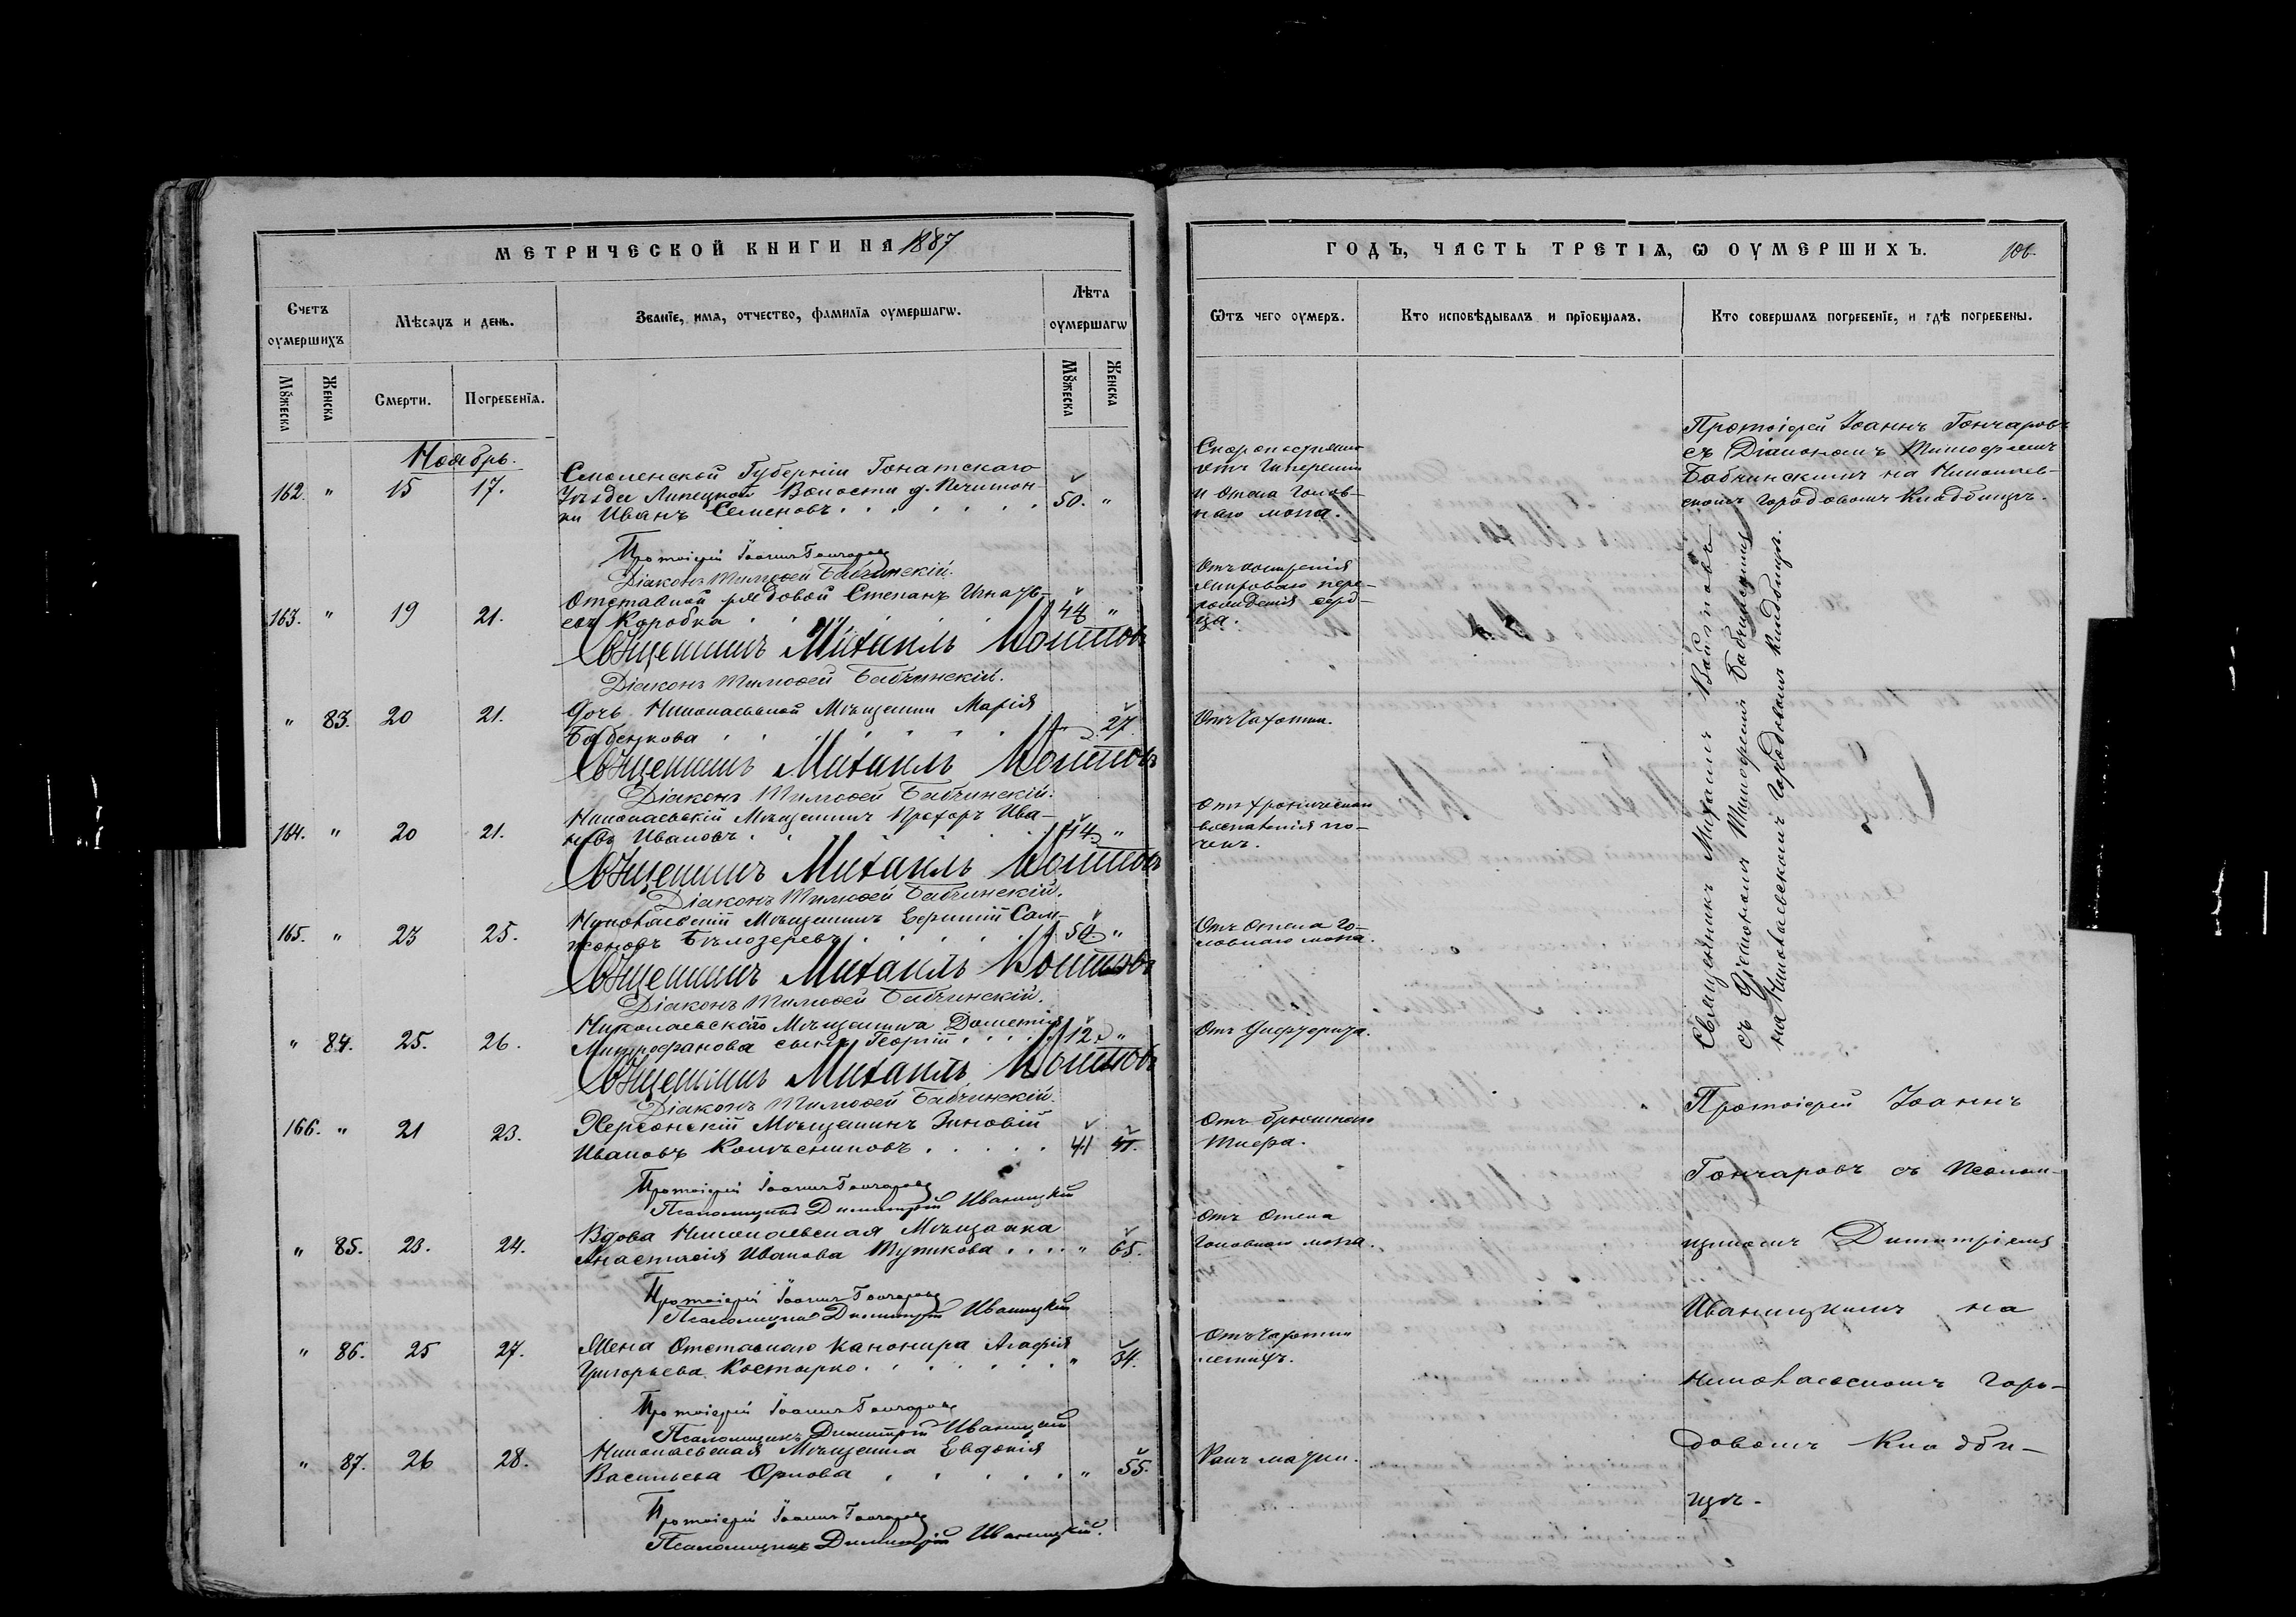 МЕТРИЧЕСКОЙ КНИГИ НА 1887
Счетъ оумершихъ
Мѣсяцъ и день.
Званіе, имя, отчество, фамилія оумершагѡ.
Лѣта оумершагѡ
Мꙋжеска
Женска
Смерти.
Погребенія.
Мꙋжеска
Женска
Ноябрь.
162. " 15 17.
Смоленской Губерніи
Уѣзда Волости д.
ки Иванъ Семеновъ
50. "
Протоіерей Іоаннъ Гончаровъ
Діаконъ Тимофей Бабчинскій.
163. " 19 21.
Отставной рядовой Степанъ Игнать-
евъ Коробка
44 "
Священникъ Михаилъ
Діаконъ Тимофей Бабчинскій.
" 83. 20 21.
Дочь Николаевской Мѣщанки Марія
27.
Священникъ Михаилъ
Діаконъ Тимофей Бабчинскій.
164. " 20 21.
Николаевскій Мѣщанинъ Прохоръ Ива-
новъ Ивановъ
14. "
Священникъ Михаилъ
Діаконъ Тимофей Бабчинскій.
165. " 23 25.
Николаевскій Мѣщанинъ Сам-
соновъ Бѣлозеревъ
50 "
Священникъ Михаилъ
Діаконъ Тимофей Бабчинскій.
" 84. 25. 26.
Николаевскаго Мѣщанина Дометія
Митрофанова сынъ Георгій
12. "
Священникъ Михаилъ
Діаконъ Тимофей Бабчинскій.
166. " 21 23.
Херсонскій Мѣщанинъ Зиновій
Ивановъ Колѣсниковъ
41 41.
Протоіерей Іоаннъ Гончаровъ
Псаломщикъ Димитрій Иваницкій
" 85. 23. 24.
Вдова Николаевская Мѣщанка
Анастасія Иванова
" 65.
Протоіерей Іоаннъ Гончаровъ
Псаломщикъ Димитрій Иваницкій
" 86. 25 27.
Жена Отставнаго канонира Агафія
Григорьева Костырко
" 34.
Протоіерей Іоаннъ Гончаровъ
Псаломщикъ Димитрій Иваницкій
" 87. 26 28.
Николаевская Мѣщанка Евдокія
Васильева Орлова
" 55.
Протоіерей Іоаннъ Гончаровъ
Псаломщикъ Димитрій Иваницкій.
ГОДЪ, ЧАСТЬ ТРЕТІѦ, Ѡ ОУМЕРШИХЪ.
106.
Ѿтъ чего оумеръ.
Кто исповѣдывалъ и пріобщалъ.
Кто совершалъ погребеніе, и гдѣ погребены.
Скоропостижно
отъ гипереміи
и отека голов-
наго мозга.
пере-
рожденія серд-
ца.
Отъ чахотки.
Отъ хроническаго
воспаленія по-
чекъ.
Отъ отека го-
ловнаго мозга.
Отъ дифтерита.
Отъ брюшного
тифа.
Отъ отека
головнаго мозга.
Отъ чахотки
легкихъ.
Ракъ матки.
Протоіерей Іоаннъ Гончаровъ
съ Діакономъ Тимофеемъ
Бабчинскимъ на Николаев-
скомъ городовомъ кладбищѣ.
Священникъ Михаилъ
съ Діакономъ Тимофеемъ Бабчинскимъ
на Николаевскомъ городовомъ кладбищѣ.
Протоіерей Іоаннъ
Гончаровъ съ псалом-
щикомъ Димитріемъ
Иваницкимъ на
Николаевскомъ горо-
довомъ кладби-
щѣ.